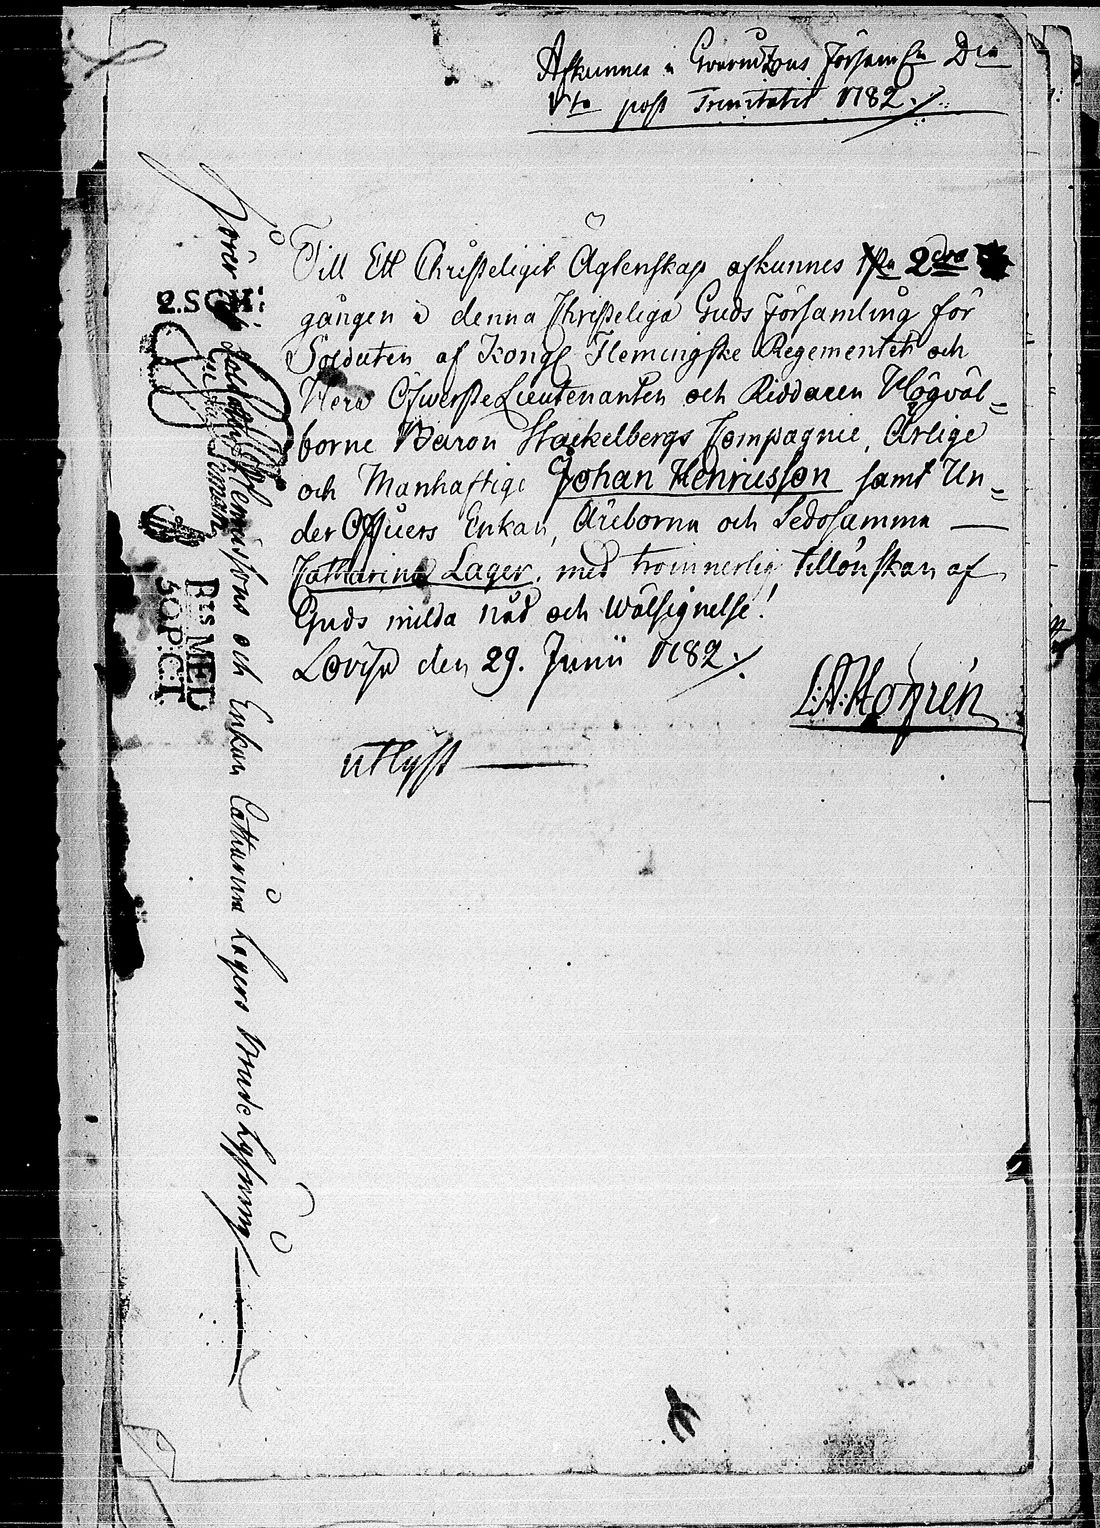 Afkunnes i Församl:n D:ca
V:ta post Trinitatis 1782
Till Ett Christeligit Ägtenskap afkunnes 1:sta 2:dra
gången i denna Christeliga Guds Församling för
Soldaten af Kongl Flemingske Regementet och
Herr Öfwerste Lieutenanten och Riddaren Högväl=
borne Baron Stackelbergs Compagnie, Ärlige
och Manhaftige Johan Henricsson samt Un=
der Officers Enkan, Äreborna och Sedosamma
Catharina Lager, med troinnerlig tillönskan af
Guds milda nåd och wälsignelse!
Lovisa den 29. Junii 1782
utlyst
2.SCH:
R:s MED
SOP.CT.
och Enkan Catharina Lagers Brude Lysning